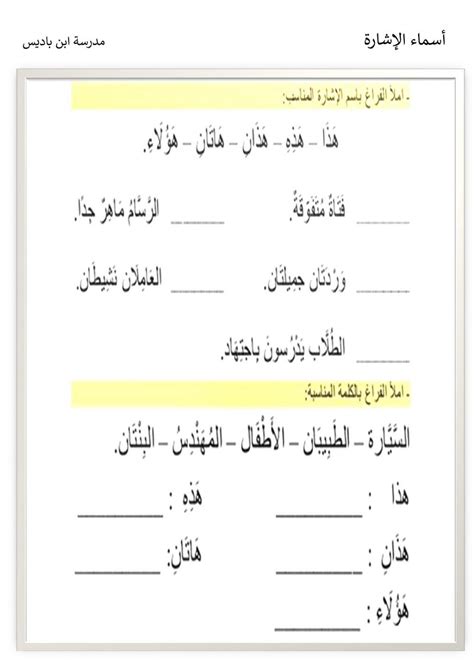 أسماء الإشارة مدرسة ابن باديس
- املأ الفراغ باسم الإشارة المناسب:
هَذَا – هَذِهِ – هَذَانِ – هَاتَانِ – هَؤُلَاءِ.
______ فَتَاةٌ مُتَفَوِّقَةٌ. ______ الرَّسَّامُ مَاهِرٌ جِدًا.
______ وَرْدَتَان جمِيلتَان. ______ العَامِلَان نَشِيطَان.
______ الطُلَّاب يَدْرُسونَ بِاجتِهَاد.
- املأ الفراغ بالكلمة المناسبة:
السَّيَّارة – الطَبِيبَان – الأَطْفَال – المُهَنْدِسُ – البِنْتَان.
هذا : ________ هَذِهِ : ________
هَذَانِ : ________ هَاتَانِ: ________
هَؤُلَاءِ : ________